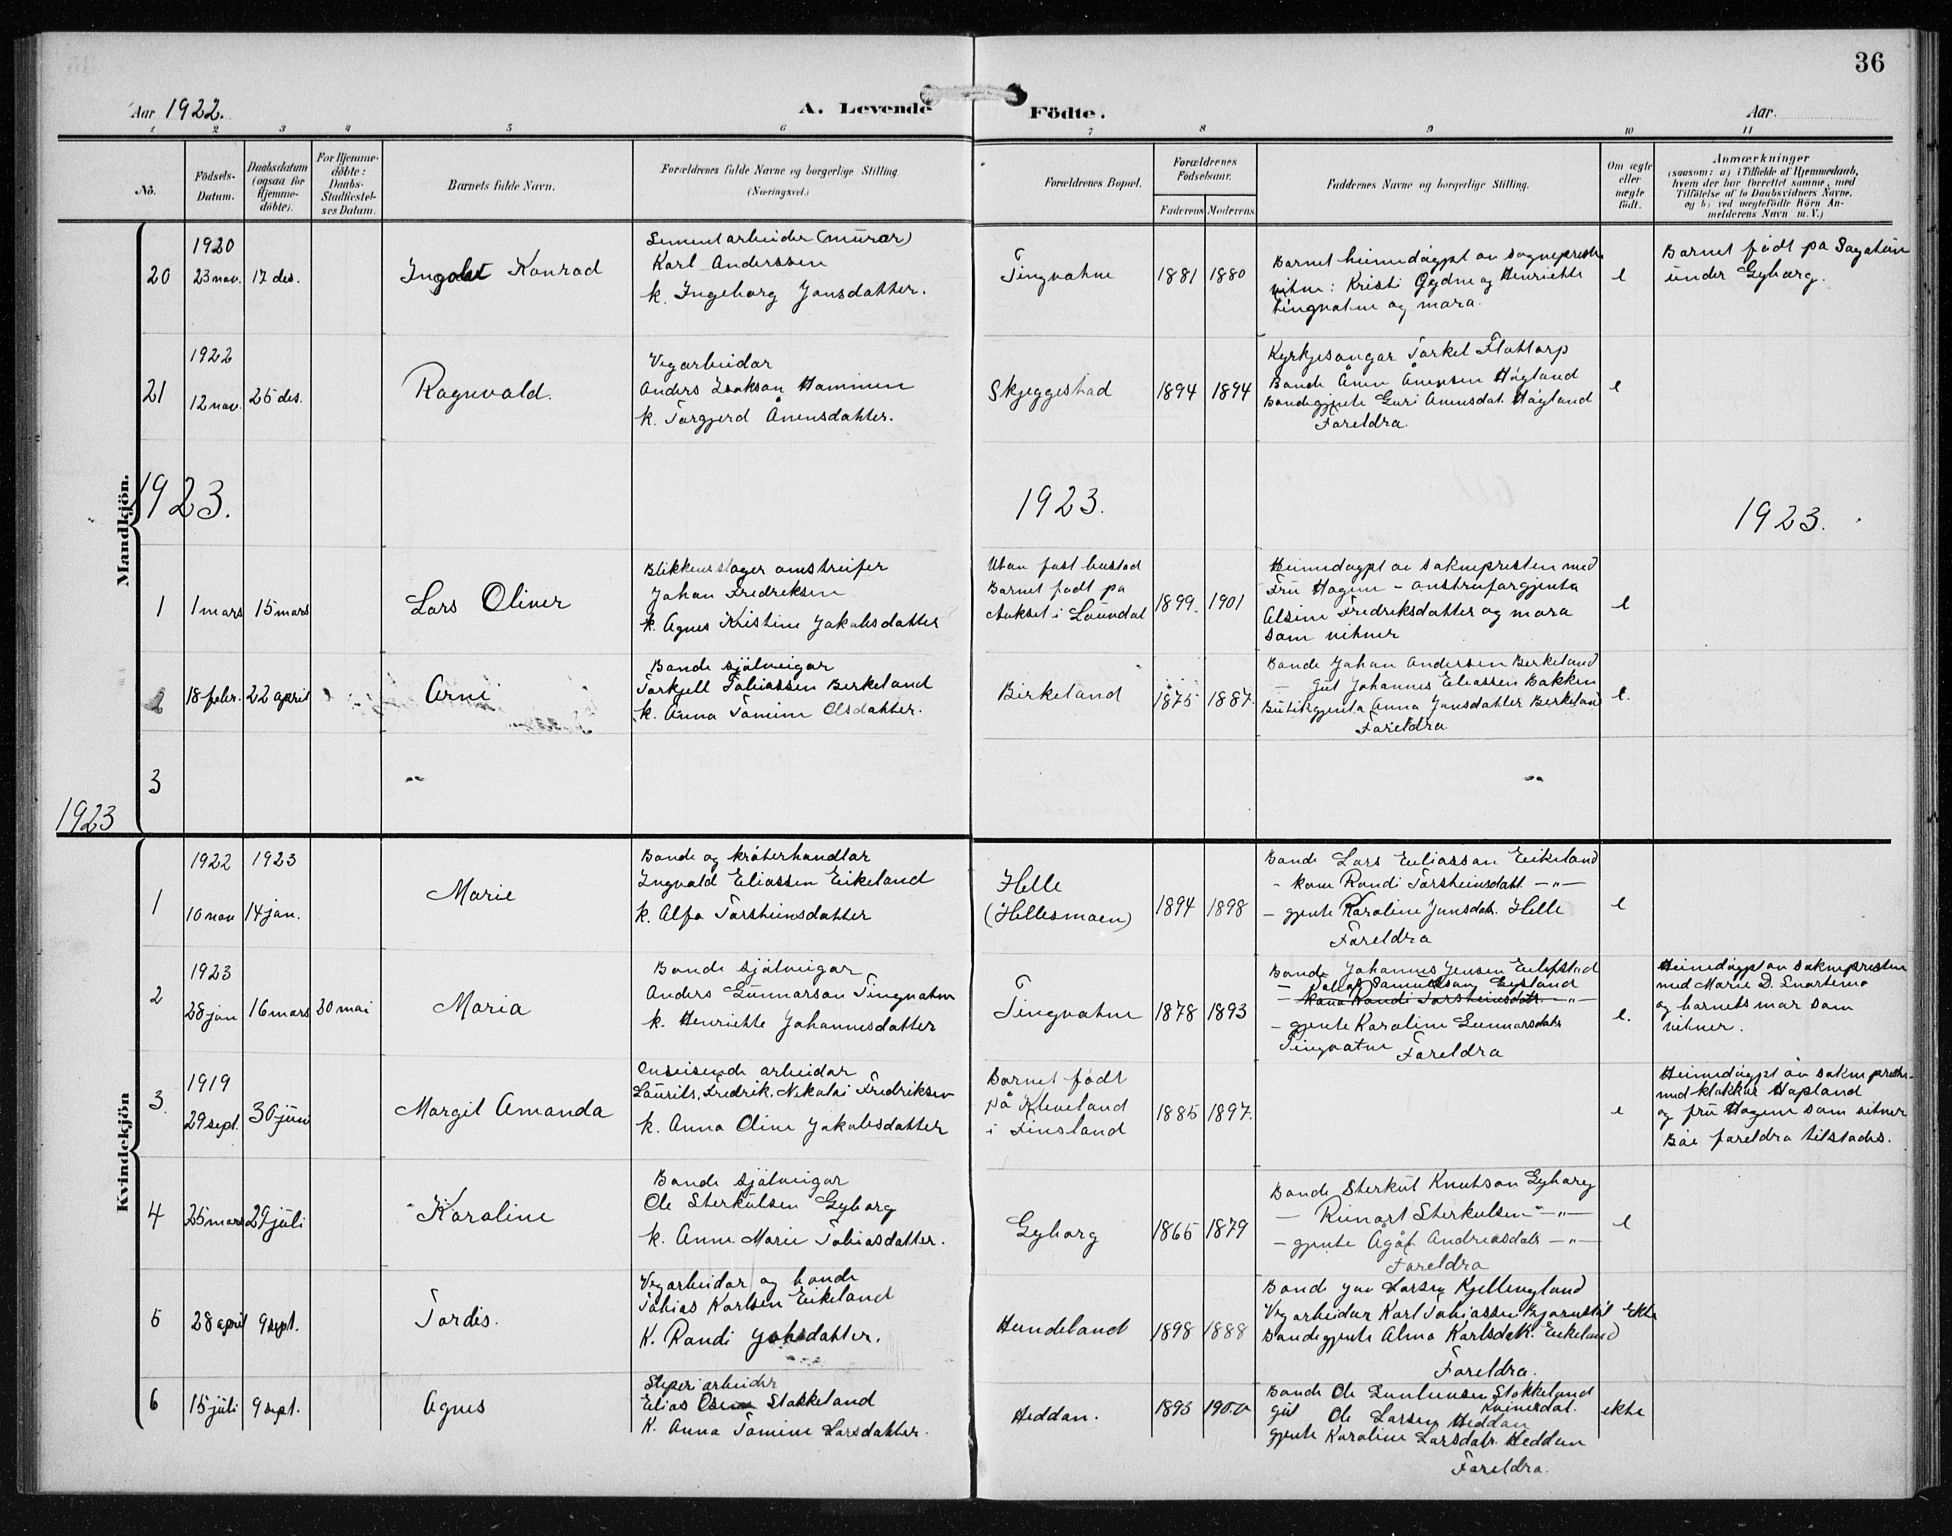 36
Aar 1922.
A. Levende Födte.
Aar
1 2 3 4 5 6 7 8 9 10 11
No.
Födsels-
Datum.
Daabsdatum
(ogsaa for
Hjemme-
döbte).
For Hjemme-
döbte:
Daabs-
Stadfæstel-
ses Datum.
Barnets fulde Navn.
Forældrenes fulde Navne og borgerlige Stilling
(Næringsvei.)
Forældrenes Bopæl.
Forældrenes
Födselsaar.
Faderens
Moderens.
Faddernes Navne og borgerlige Stilling.
Om ægte
eller
uægte
födt.
Anmærkninger
(saasom: a) i Tilfælde af Hjemmedaab,
hvem der har forrettet samme, med
Tilföielse af to Daabsvidners Navne,
og b) ved uægtefödte Börn An-
melderens Navn m. V.)
Mandkjön.
20
1920
23 nov.
17 des.
Konrad
Sementarbeider (murar)
Karl Anderssen
k. Ingeborg Jonsdatter.
Tingvatne
1881
1880
Barnet heimedøypt av sognepresten
vitne: Kristi og Henriette
Tingvatne og mora.
e
Barnet født på
under Gyberg.
21
1922
12 nov.
25 des.
Ragnvald.
Vegarbeidar
Anders Isakson Hammen
k. Torgjerd Ånensdatter.
Skjeggestad
1894
1894
Kyrkjesongar Torkel Flottorp
Bonde Ånen Ånensen Høyland
Bondegjente Guri Ånensdat. Høyland
Foreldra.
e
1923.
1923.
1923.
1
1 mars
15 mars
Lars Oliver
Blikkenslager omstreifer
Johan Fredriksen
k. Agnes Kristine Jakobsdatter
Utan fast bustad
Barnet født på
i Laundal
1899.
1901
Heimedøypt av soknepresten med
Fru Hagen –
Alsine Fredriksdatter og mora
som vitner
e
2
18 febr.
22 april
Arne
Bonde sjølveigar
Torkjell Tobiassen Birkeland
k. Anna Tomine Olsdatter.
Birkeland
1875
1887.
Bonde Johan Andersen Birkeland
— gut Johannes Eliassen Bakken
Butikgjenta Anna Jonsdatter Birkeland
Foreldra
e.
3
1923
Kvindekjön
1
1922
10 nov
1923
14 jan.
Marie
Bonde og krøterhandlar
Ingvald Eliassen Eikeland
k. Alfa Torsteinsdatter
Helle
(Hellesmoen)
1894
1898
Bonde Lars Eliassen Eikeland
- kone Randi Torsteinsdatt. —"—
- gjente Karoline Jonsdatr. Helle
Foreldra
e
2
1923
28 jan
16 mars
20 mai
Maria
Bonde sjølveigar
Anders Gunnarson Tingvatne
k. Henriette Johannesdatter
Tingvatne
1878
1893
Bonde Johannes Jensen
- Samuelson Eysland
- kona Randi Torsteinsdatr. —"—
- gjente Karoline Gunnarsdatr
Tingvatne Foreldra
e.
Heimedøypt av soknepresten
med Marie D. Snartemo
og barnets mor som
vitner.
3.
1919
29 sept.
30 juni
Margit Amanda
arbeidar
Laurits, Fredrik, Nikolai Fredriksen
k. Anna Oline Jakobsdatter
Barnet født
på Kleveland
i Finsland
1885
1897.
e
Heimedøypt av
med klokkar Hapland
og fru Hagen som vitner
Båe foreldra tilstades.
4
25 mars
29 juli
Karoline
Bonde sjølveigar
Ole Sterkulsen Gyberg
k. Anne Marie Tobiasdatter.
Gyberg
1865
1879
Bonde Sterkul Knutson Gyberg
— Reinart Sterkulsen —"—
- gjente Ågåt Andreasdatr —"—
Foreldra
e
5
28 april
9 sept.
Tordis.
Vegarbeidar og bonde
Tobias Karlsen Eikeland
K. Randi Jonsdatter.
Hundeland
1898
1888
Bonde Jon Larsen
Vegarbeidar Karl Tobiassen
Bondegjente Alma Karlsdatt. Eikeland
Foreldra.
Ekte
6
15 juli
9 sept.
Agnes
Sliperiarbeider
Elias Stakkeland
K. Anna Tomine Larsdatter.
Heddan.
1893
1900
Bonde Ole Gunleivsen Stakkeland
Kvinesdal.
gut Ole Larsen Heddan
gjente Karoline Larsdatr. Heddan
Foreldra.
ekte